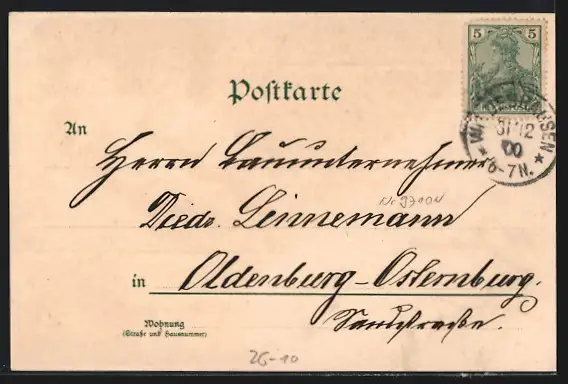 5 5
Postkarte
31 12
00
* 6-7N. *
An
Herrn Bauunternehmer
Diedr. Linnemann
in Oldenburg-Osternburg.
Sandstraße.
Wohnung
(Straße und Hausnummer)
26-10